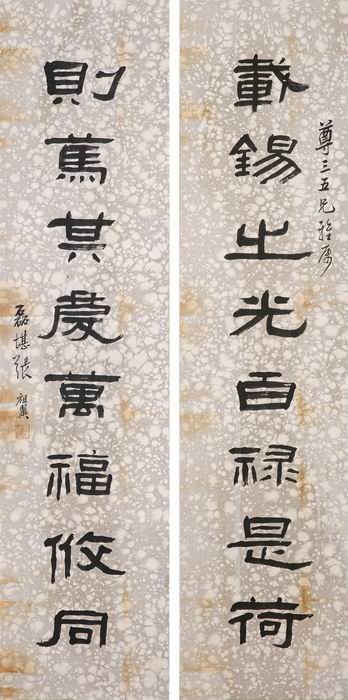 尊三五兄雅属
載錫之光百禄是荷
則篤其慶萬福攸同
磊堪張祖翼